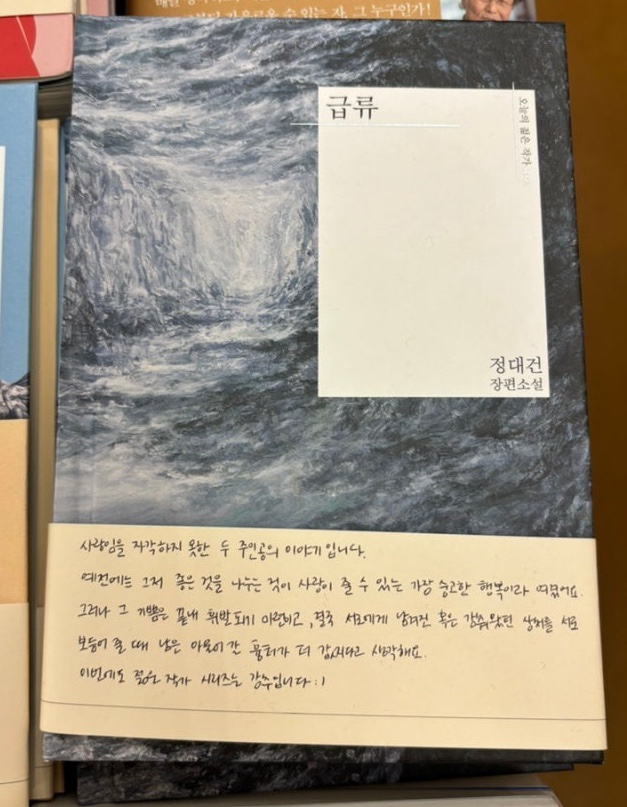 부터 자유로울 수 있는 자, 그 누구인가!
급류
오늘의 젊은 작가
정대건
장편소설
사랑임을 자각하지 못한 두 주인공의 이야기입니다.
예전에는 그저 좋은 것을 나누는 것이 사랑이 줄 수 있는 가장 숭고한 행복이라 여겼어요.
그러나 그 기쁨은 끝내 휘발되기 마련이고, 결국 서로에게 남겨진 혹은 감춰왔던 상처를 서로
보듬어 줄 때 남은 아로이간 흉터가 더 값지다고 생각해요.
이번에도 젊은 작가 시리즈는 강추입니다 :)